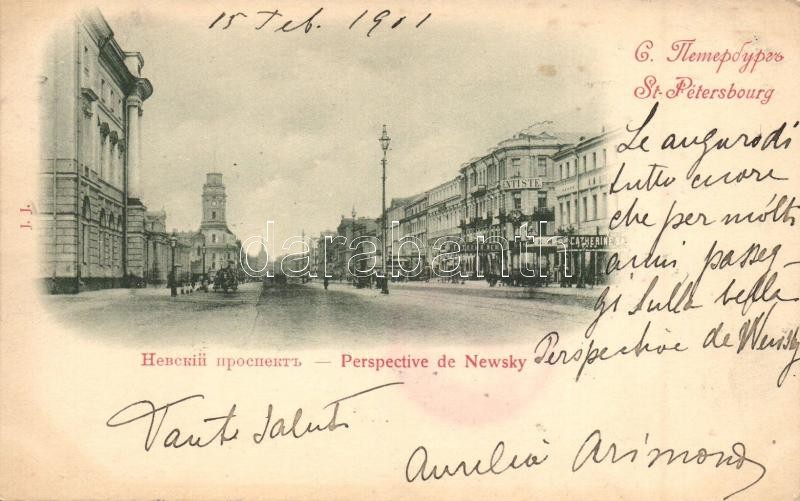 15 Feb. 1901
С. Петербургъ
St-Pétersbourg
Le auguro di
tutto cuore
che per molti
anni passeg-
gi sulla bella
Perspective de Newsky
J. J.
ENTISTE
CATHERINE
darabanth
Невскій проспектъ — Perspective de Newsky
Tanti saluti
Aurelia Arimondi